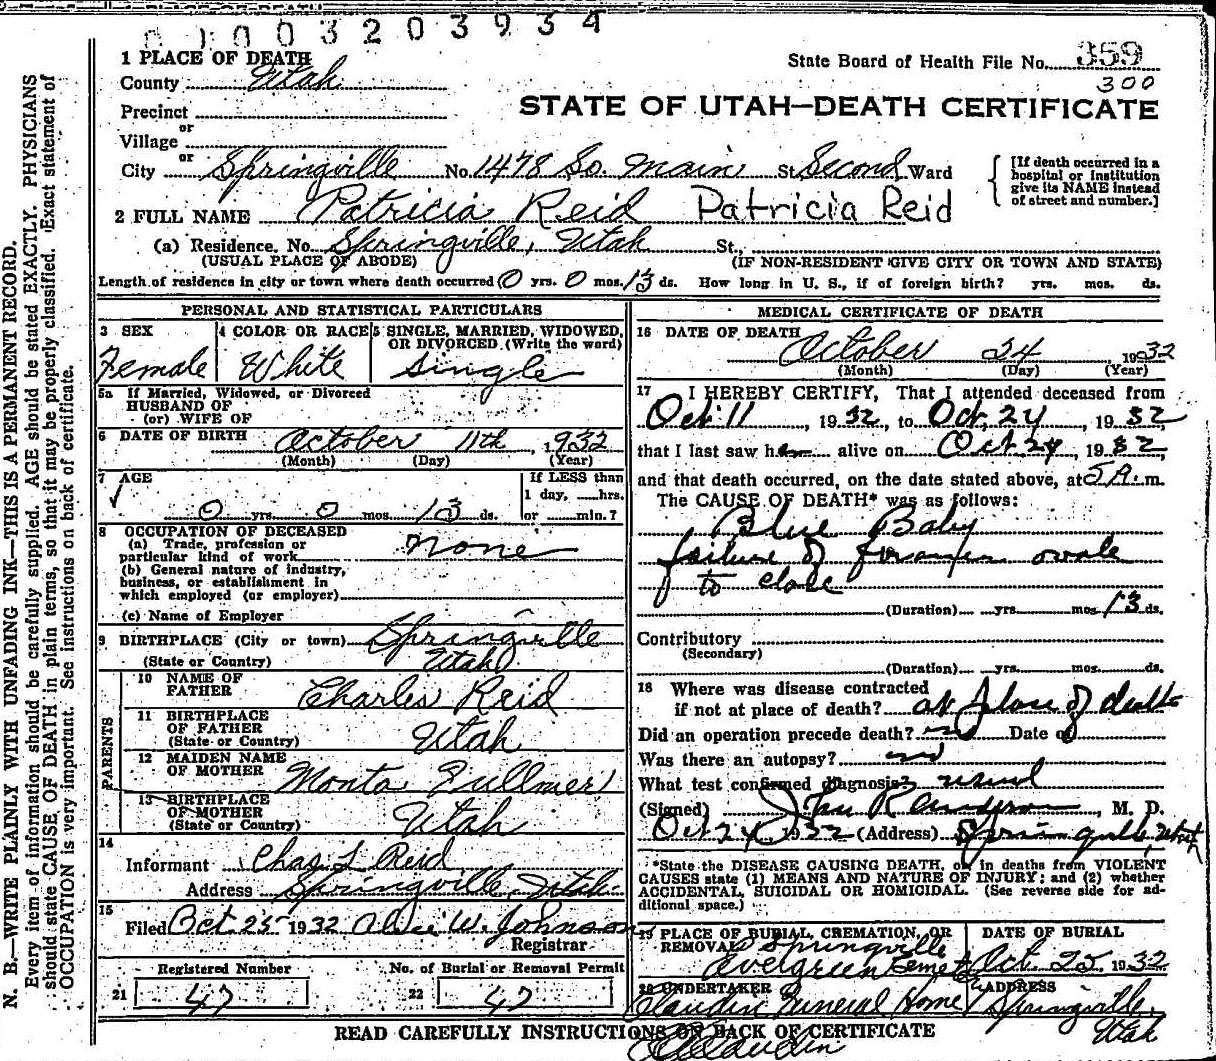 0 1 0 0 3 2 0 3 9 3 4
1 PLACE OF DEATH
County Utah
State Board of Health File No. 359
300
STATE OF UTAH—DEATH CERTIFICATE
Precinct
or
Village
or
City Springville No. 1478 So. Main St. Second Ward
[If death occurred in a hospital or institution give its NAME instead of street and number.]
2 FULL NAME Patricia Reid Patricia Reid
(a) Residence. No. Springville, Utah St.
(USUAL PLACE OF ABODE) (IF NON-RESIDENT GIVE CITY OR TOWN AND STATE)
Length of residence in city or town where death occurred 0 yrs. 0 mos. 13 ds. How long in U. S., if of foreign birth? yrs. mos. ds.
PERSONAL AND STATISTICAL PARTICULARS
3 SEX 4 COLOR OR RACE 5 SINGLE, MARRIED, WIDOWED,
OR DIVORCED (Write the word)
Female White Single
5a If Married, Widowed, or Divorced
HUSBAND OF
(or) WIFE OF
6 DATE OF BIRTH October 11th, 1932
(Month) (Day) (Year)
7 AGE If LESS than
1 day, hrs.
0 yrs. 0 mos. 13 ds. or min.?
8 OCCUPATION OF DECEASED
(a) Trade, profession or
particular kind of work none
(b) General nature of industry,
business, or establishment in
which employed (or employer)
(c) Name of Employer
9 BIRTHPLACE (City or town) Springville
(State or Country) Utah
PARENTS
10 NAME OF
FATHER Charles Reid
11 BIRTHPLACE
OF FATHER
(State or Country) Utah
12 MAIDEN NAME
OF MOTHER Monta Fullmer
13 BIRTHPLACE
OF MOTHER
(State or Country) Utah
14
Informant Chas L Reid
Address Springville, Utah
15
Filed Oct. 25 1932 Alice W. Johnson
Registrar
Registered Number No. of Burial or Removal Permit
21 47 22 47
MEDICAL CERTIFICATE OF DEATH
16 DATE OF DEATH
October 24, 1932
(Month) (Day) (Year)
17 I HEREBY CERTIFY, That I attended deceased from
Oct. 11, 1932, to Oct. 24, 1932
that I last saw her alive on Oct. 24, 1932,
and that death occurred, on the date stated above, at 5 A. m.
The CAUSE OF DEATH* was as follows:
Blue Baby
failure of foramen ovale
to close
(Duration) yrs. mos. 13 ds.
Contributory
(Secondary)
(Duration) yrs. mos. ds.
18 Where was disease contracted
if not at place of death? at place of death
Did an operation precede death? no Date of
Was there an autopsy? no
What test confirmed diagnosis? usual
(Signed) , M. D.
Oct 24 1932 (Address) Springville, Utah
*State the DISEASE CAUSING DEATH, or in deaths from VIOLENT
CAUSES state (1) MEANS AND NATURE OF INJURY; and (2) whether
ACCIDENTAL, SUICIDAL OR HOMICIDAL. (See reverse side for ad-
ditional space.)
19 PLACE OF BURIAL, CREMATION, OR DATE OF BURIAL
REMOVAL Springville
Evergreen Cemetery Oct. 25, 1932
20 UNDERTAKER ADDRESS
Claudin Funeral Home Springville,
Utah
READ CAREFULLY INSTRUCTIONS ON BACK OF CERTIFICATE
Claudin
N. B.—WRITE PLAINLY WITH UNFADING INK—THIS IS A PERMANENT RECORD.
Every item of information should be carefully supplied. AGE should be stated EXACTLY. PHYSICIANS
should state CAUSE OF DEATH in plain terms, so that it may be properly classified. Exact statement of
OCCUPATION is very important. See instructions on back of certificate.